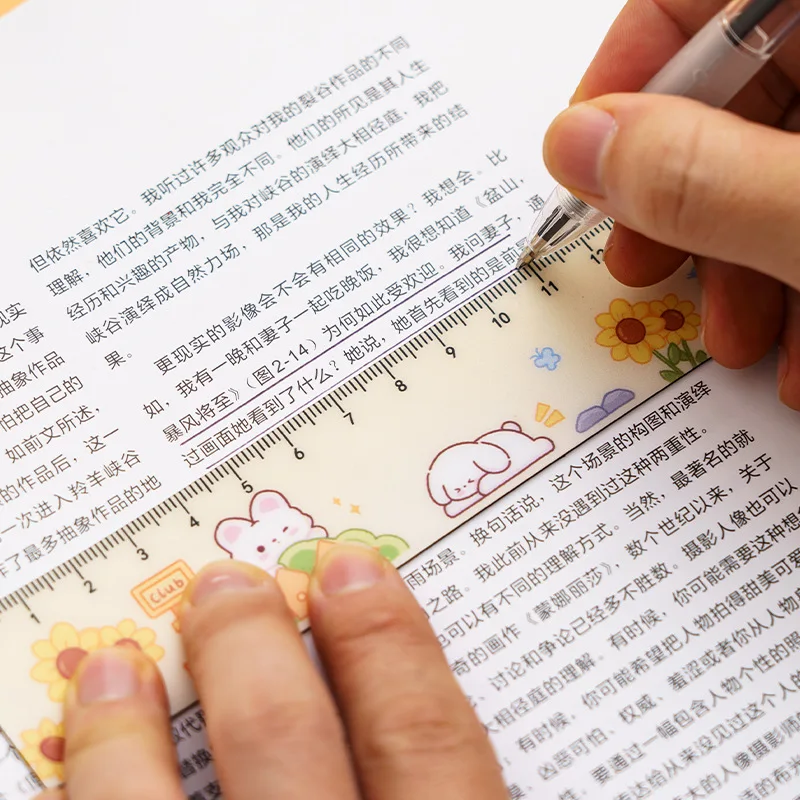 现实
这个事
抽象作品
怕把自己的
如前文所述,
的作品后,这一
一次进入羚羊峡谷
作了最多抽象作品的地
但依然喜欢它。我听过许多观众对我的裂谷作品的不同
理解,他们的背景和我完全不同。他们的所见是其人生
经历和兴趣的产物,与我对峡谷的演绎大相径庭,我把
峡谷演绎成自然力场,那是我的人生经历所带来的结
果。
更现实的影像会不会有相同的效果?我想会。比
如,我有一晚和妻子一起吃晚饭,我很想知道《盆山,
暴风将至》(图2-14)为何如此受欢迎。我问妻子,通
过画面她看到了什么?她说,她首先看到的是前
1 2 3 4 5 6 7 8 9 10 11 12
Club
雨场景。换句话说,这个场景的构图和演绎
之路。我此前从来没遇到过这种两重性。
也可以有不同的理解方式。当然,最著名的就
奇的画作《蒙娜丽莎》,数个世纪以来,关于
、讨论和争论已经多不胜数。摄影人像也可以
大相径庭的理解。有时候,你可能需要这种想
,有时候,你可能希望把人物拍得甜美可爱
、凶恶可怕、权威、羞涩或者你从人物
,要通过一幅包含人物个性的照
表达给从来没见过这个人的
大的人像摄影师
活的布光